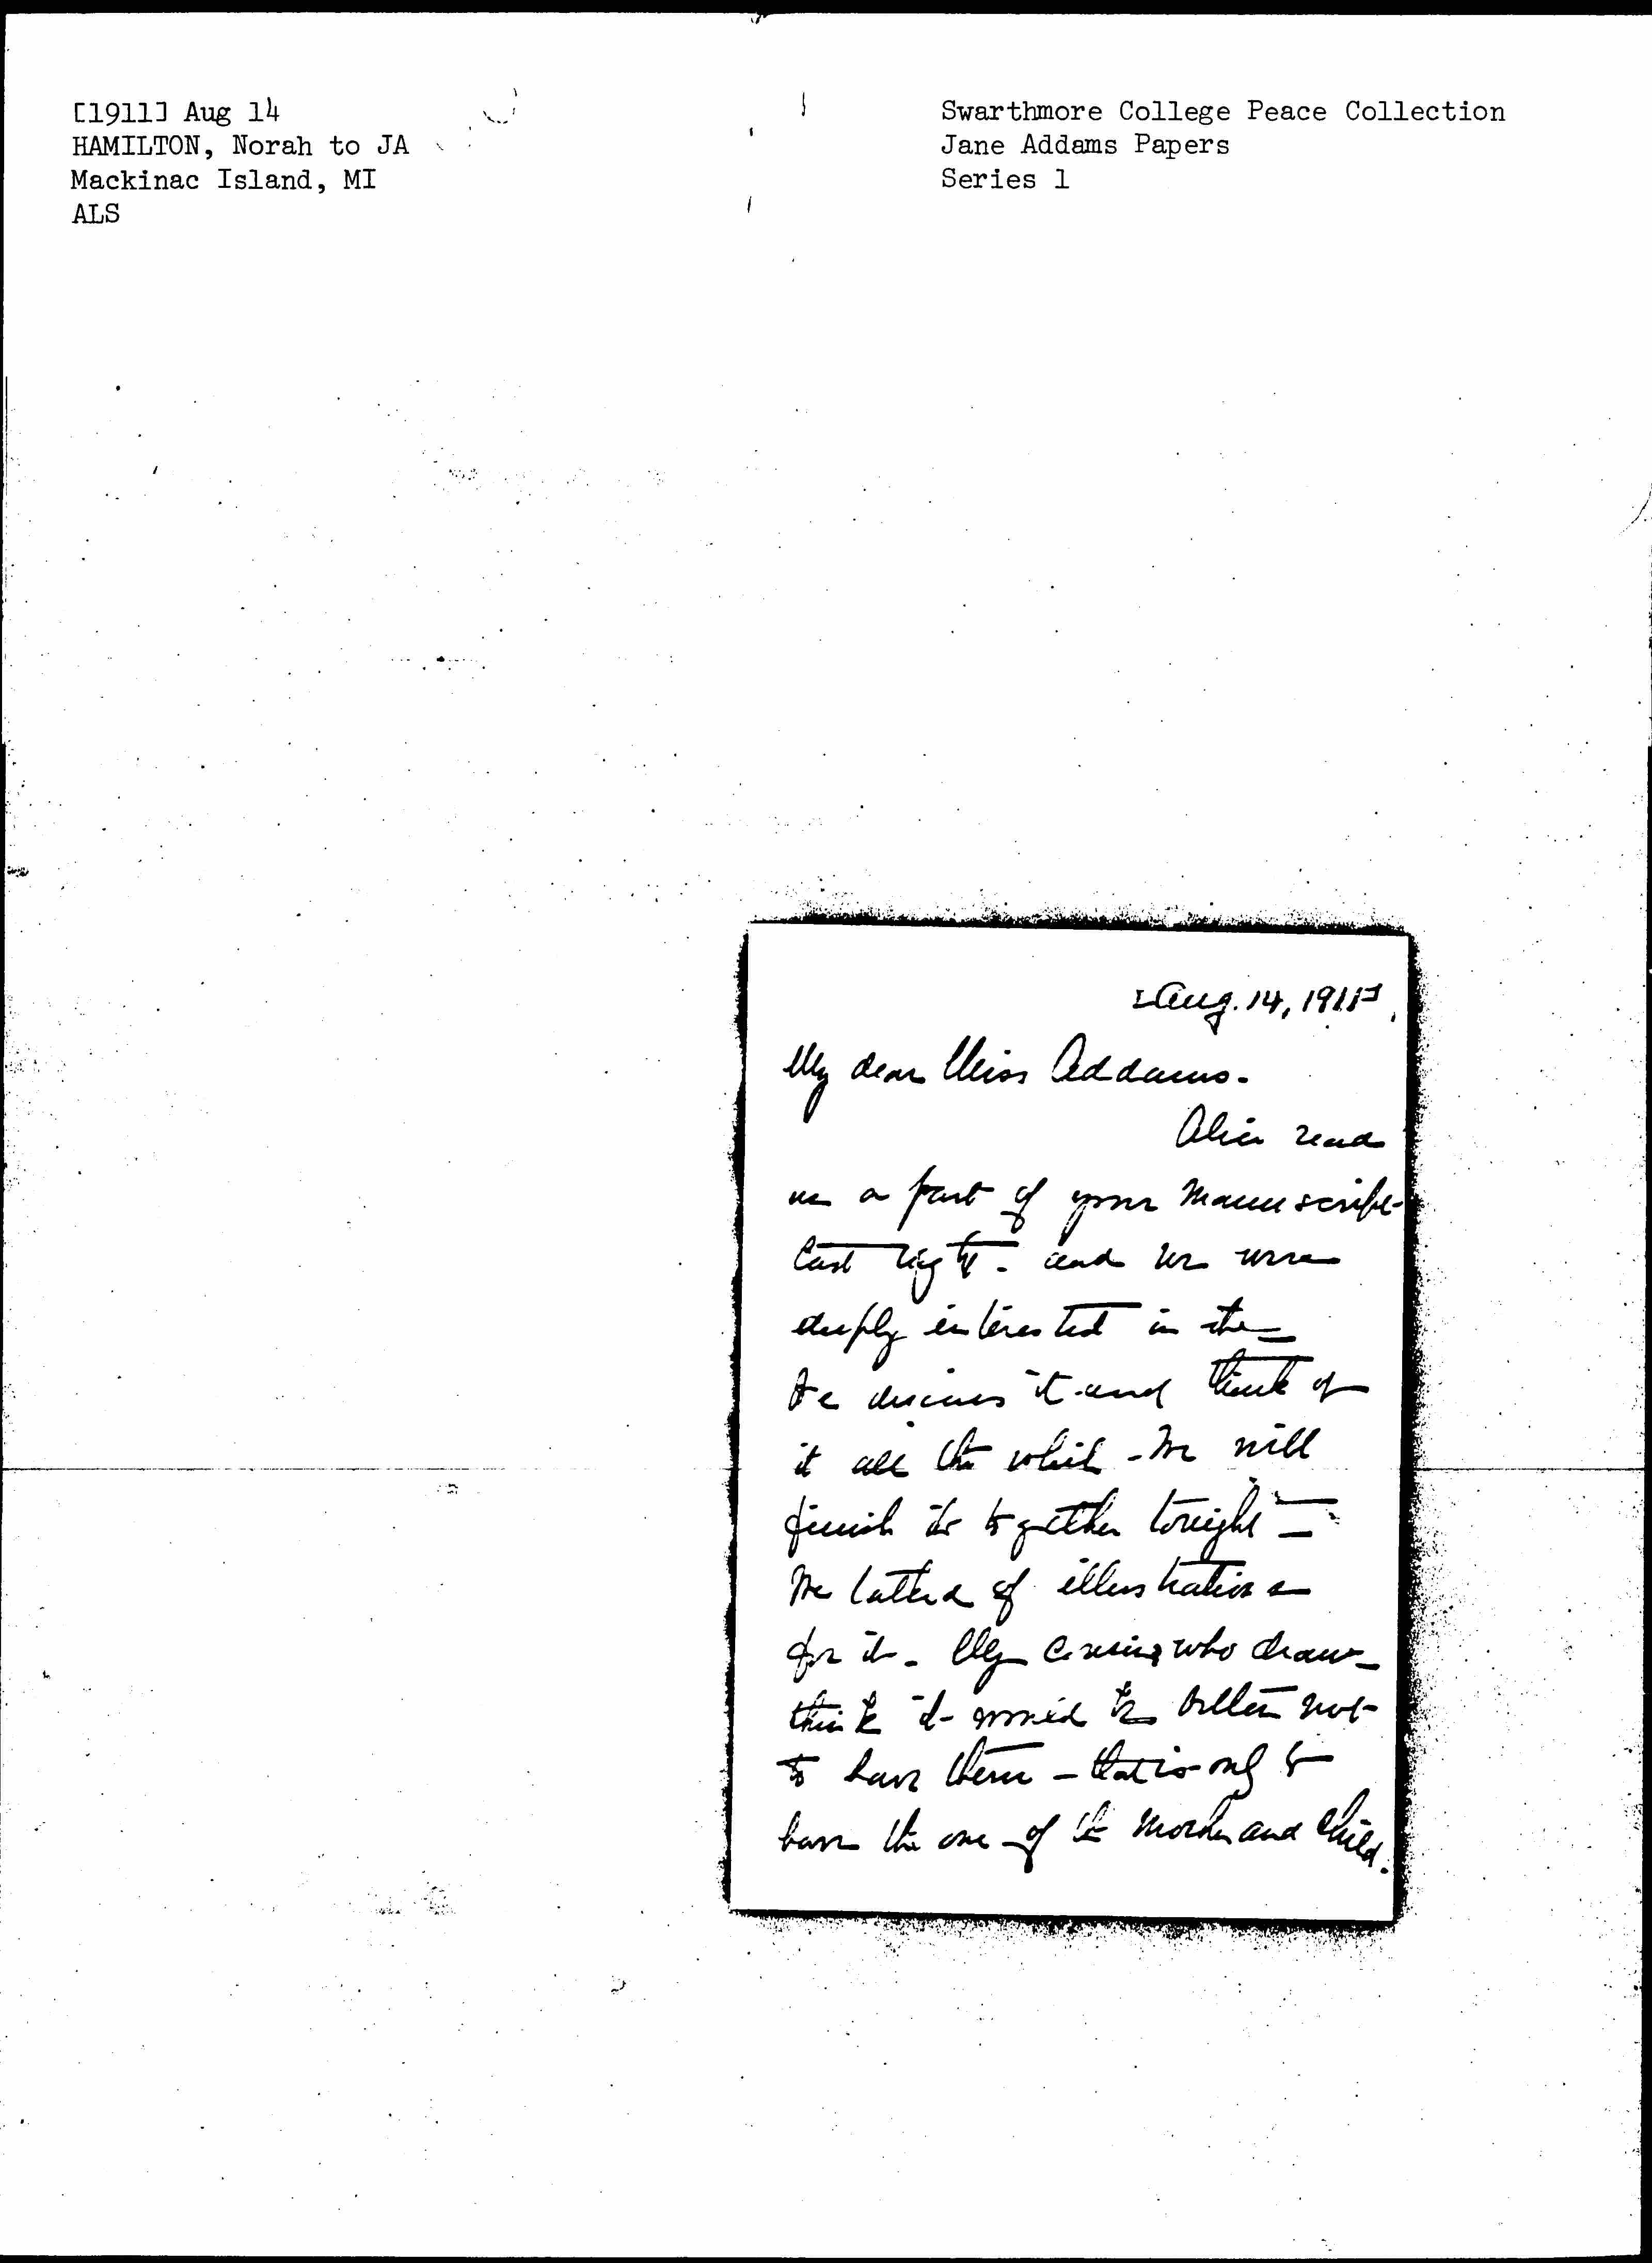 [1911] Aug 14
HAMILTON, Norah to JA
Mackinac Island, MI
ALS
Swarthmore College Peace Collection
Jane Addams Papers
Series 1
[Aug. 14, 1911]
My dear Miss Addams.
Alice read
us a part of your manuscript
last night - and we were
deeply interested in the
discuss it and think of
it all the while - We will
finish it together tonight -
We talked of illustrations
for it - My cousin who draws
thinks it would be better not
to have them - that is only to
have the one of the Mother and Child.